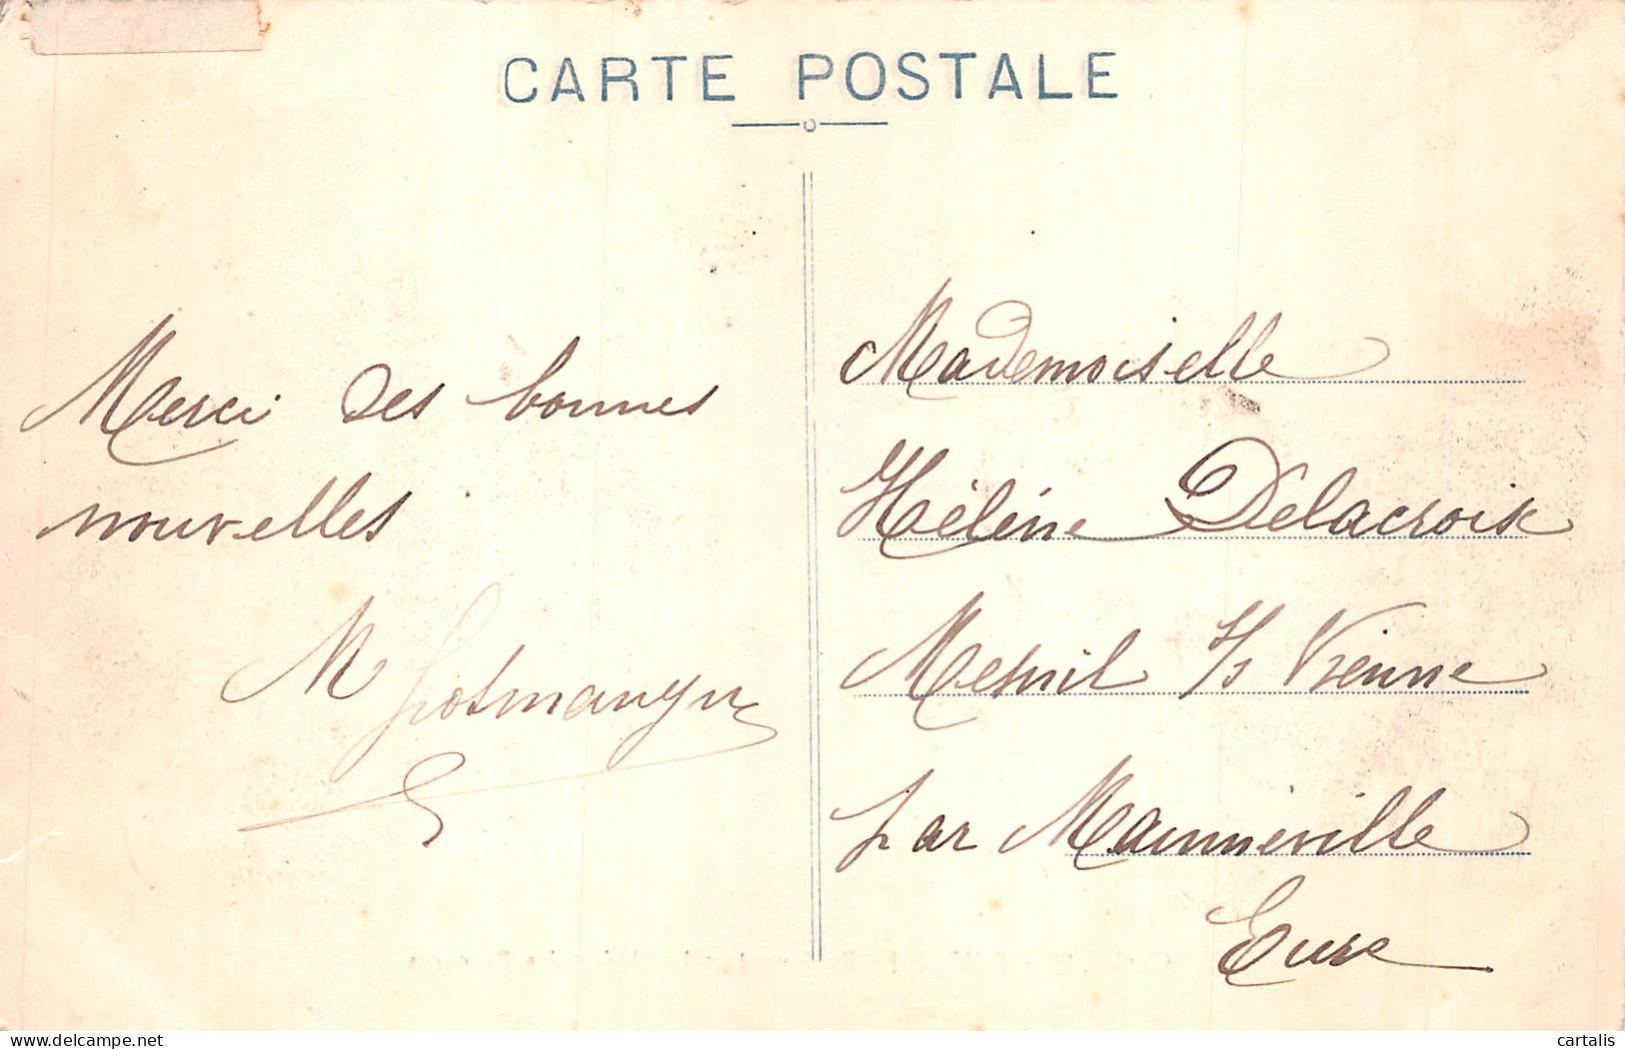 CARTE POSTALE
Merci des bonnes
nouvelles
M
Mademoiselle
Hélène Delacroix
Mesnil S/s Vienne
par Mainneville
Eure
delcampe.net
cartalis